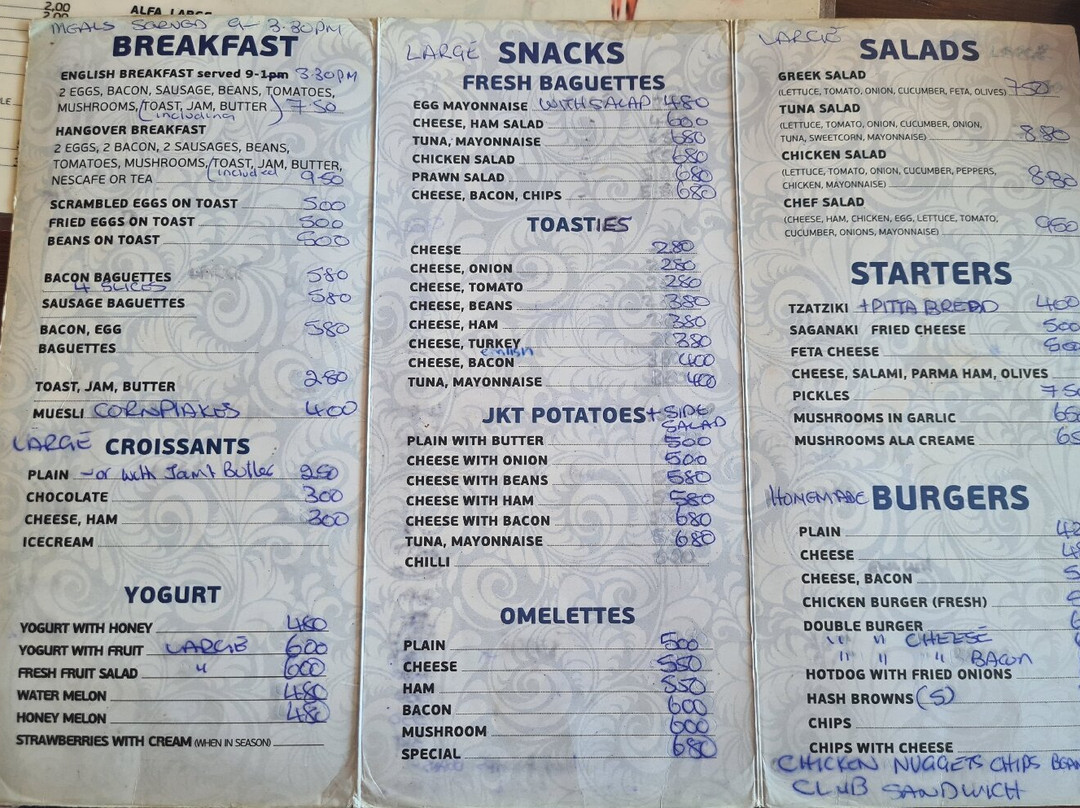 2,00
2,00
ALFA LARGE
MEALS SERVED 9- 3.30PM
BREAKFAST
ENGLISH BREAKFAST served 9-1pm 3.30PM
2 EGGS, BACON, SAUSAGE, BEANS, TOMATOES,
MUSHROOMS,/TOAST, JAM, BUTTER) 7.50
(including
HANGOVER BREAKFAST
2 EGGS, 2 BACON, 2 SAUSAGES, BEANS,
TOMATOES, MUSHROOMS,/TOAST, JAM, BUTTER,
NESCAFE OR TEA (included 9.50
SCRAMBLED EGGS ON TOAST 500
FRIED EGGS ON TOAST 500
BEANS ON TOAST 500
BACON BAGUETTES 580
4 SLICES
SAUSAGE BAGUETTES 580
BACON, EGG 580
BAGUETTES
TOAST, JAM, BUTTER 280
MUESLI CORNFLAKES 400
LARGE CROISSANTS
PLAIN -or with Jam+Butter 250
CHOCOLATE 300
CHEESE, HAM 300
ICECREAM
YOGURT
YOGURT WITH HONEY 480
YOGURT WITH FRUIT LARGE 600
FRESH FRUIT SALAD " 600
WATER MELON 480
HONEY MELON 480
STRAWBERRIES WITH CREAM (WHEN IN SEASON)
LARGE SNACKS
FRESH BAGUETTES
EGG MAYONNAISE WITH SALAD 480
CHEESE, HAM SALAD 600
TUNA, MAYONNAISE 680
CHICKEN SALAD 680
PRAWN SALAD 680
CHEESE, BACON, CHIPS 680
TOASTIES
CHEESE 280
CHEESE, ONION 280
CHEESE, TOMATO 280
CHEESE, BEANS 380
CHEESE, HAM 380
CHEESE, TURKEY 380
english
CHEESE, BACON 400
TUNA, MAYONNAISE 400
JKT POTATOES + SIDE
SALAD
PLAIN WITH BUTTER 500
CHEESE WITH ONION 500
CHEESE WITH BEANS 580
CHEESE WITH HAM 580
CHEESE WITH BACON 680
TUNA, MAYONNAISE 680
CHILLI
OMELETTES
PLAIN 500
CHEESE 550
HAM 550
BACON 600
MUSHROOM 600
SPECIAL 680
LARGE SALADS
GREEK SALAD
(LETTUCE, TOMATO, ONION, CUCUMBER, FETA, OLIVES) 750
TUNA SALAD
(LETTUCE, TOMATO, ONION, CUCUMBER, ONION,
TUNA, SWEETCORN, MAYONNAISE) 8.80
CHICKEN SALAD
(LETTUCE, TOMATO, ONION, CUCUMBER, PEPPERS,
CHICKEN, MAYONNAISE) 880
CHEF SALAD
(CHEESE, HAM, CHICKEN, EGG, LETTUCE, TOMATO,
CUCUMBER, ONIONS, MAYONNAISE) 950
STARTERS
TZATZIKI +PITTA BREAD 400
SAGANAKI FRIED CHEESE 500
FETA CHEESE 500
CHEESE, SALAMI, PARMA HAM, OLIVES
PICKLES 750
MUSHROOMS IN GARLIC 650
MUSHROOMS ALA CREAME 65
HOMEMADE BURGERS
PLAIN
CHEESE
CHEESE, BACON
CHICKEN BURGER (FRESH)
DOUBLE BURGER
" " CHEESE
" " " BACON
HOTDOG WITH FRIED ONIONS
HASH BROWNS (5)
CHIPS
CHIPS WITH CHEESE
CHICKEN NUGGETS CHIPS BEAN
CLUB SANDWICH